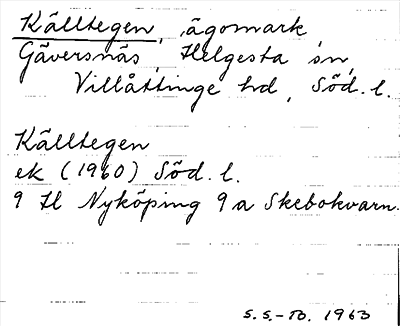 Källtegen, ägomark,
Gäversnäs, Helgesta sn,
Villåttinge hd, Söd. l.
Källtegen
ek (1960) Söd. l.
9 H Nyköping 9 a Skebokvarn.
S.S.-B. 1963